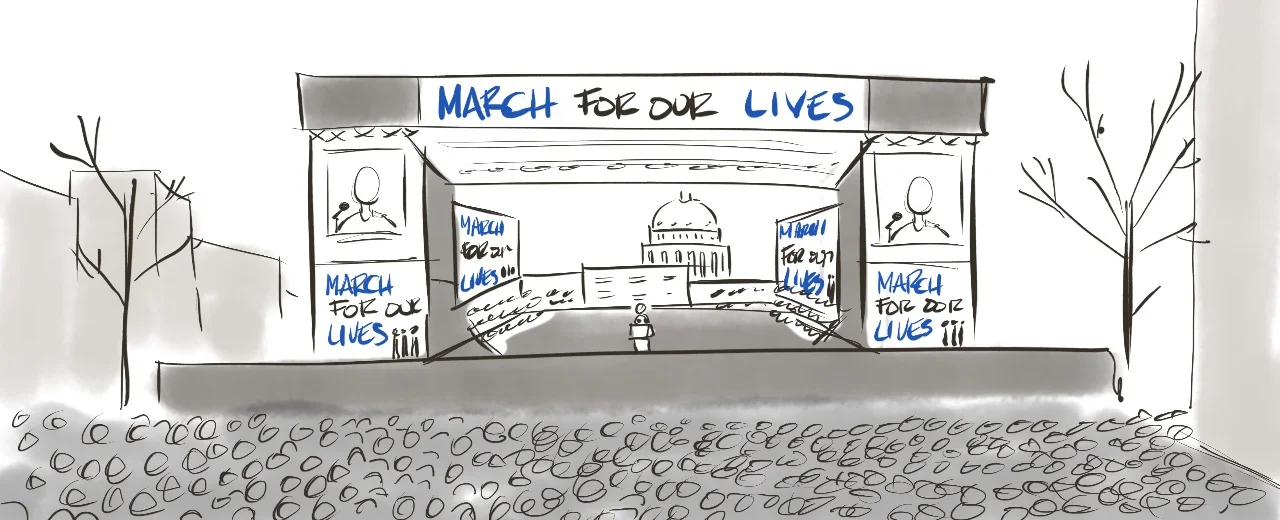 MARCH FOR OUR LIVES
MARCH
FOR OUR
LIVES
MARCH
FOR OUR
LIVES
MARCH
FOR OUR
LIVES
MARCH
FOR OUR
LIVES